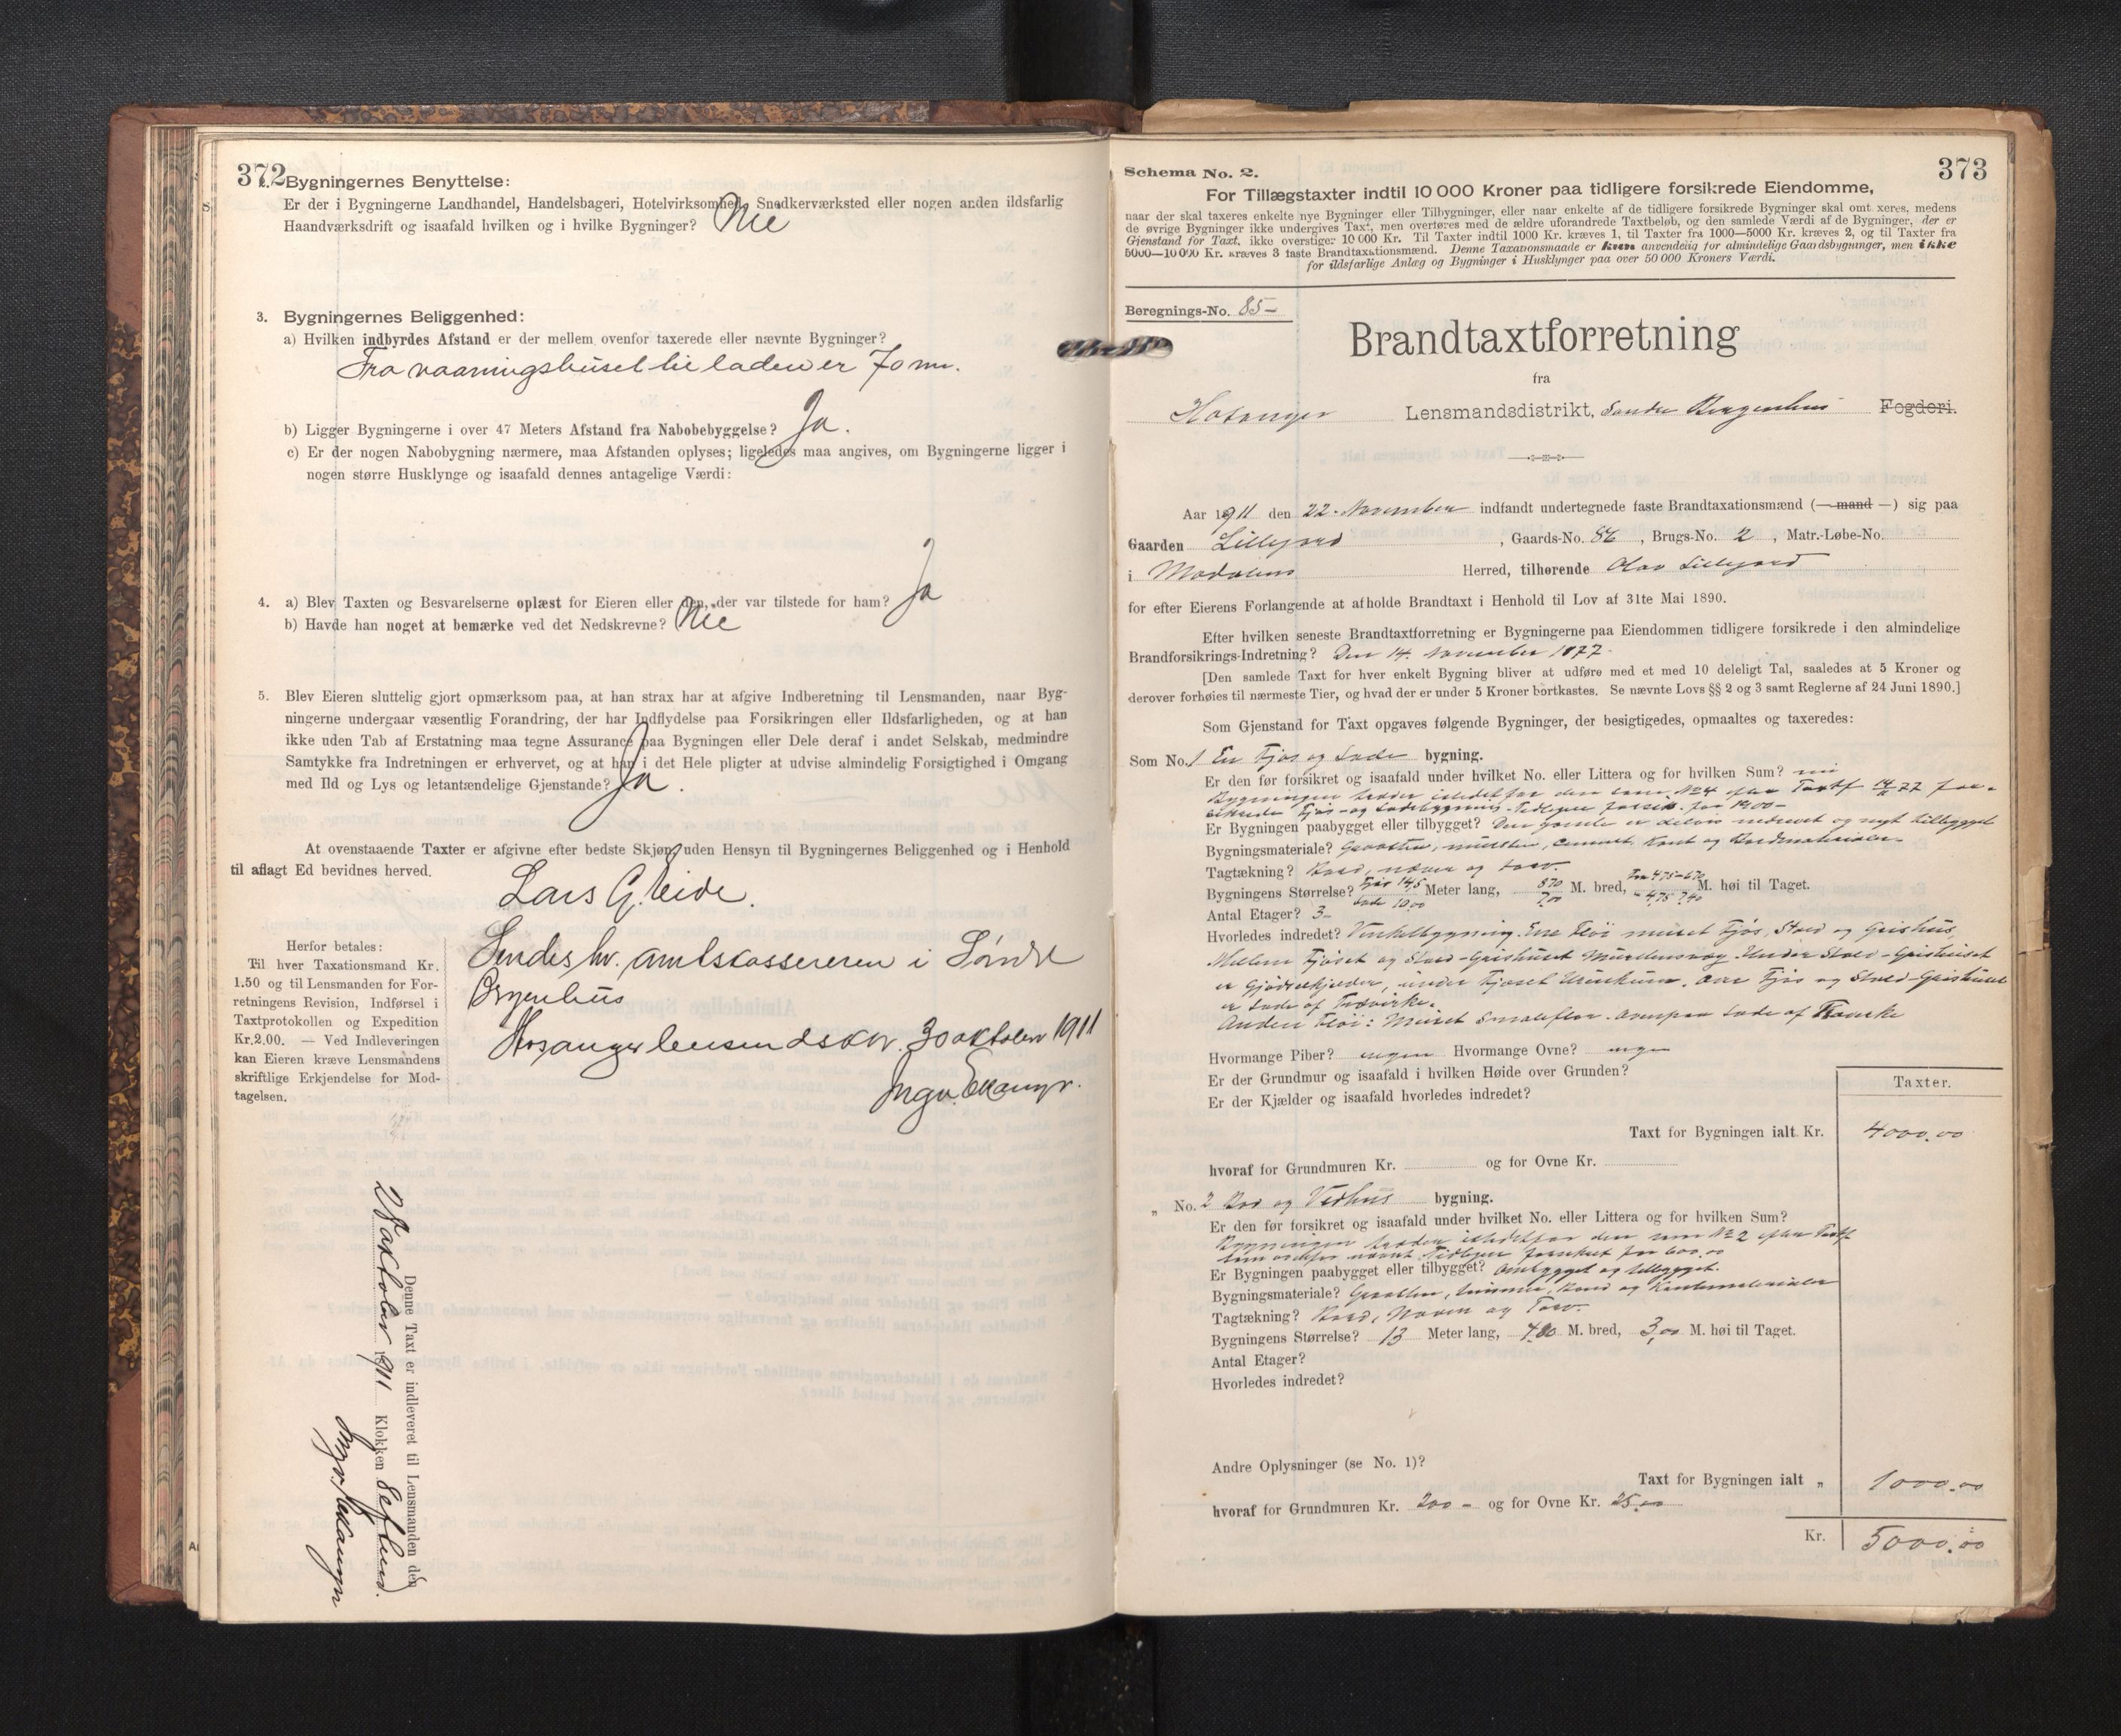 372
2. Bygningernes Benyttelse:
Er der i Bygningerne Landhandel, Handelsbageri, Hotelvirksomhed, Snedkerværksted eller nogen anden ildsfarlig
Haandværksdrift og isaafald hvilken og i hvilke Bygninger? Nei
3. Bygningernes Beliggenhed:
a) Hvilken indbyrdes Afstand er der mellem ovenfor taxerede eller nævnte Bygninger?
Fra vaaningshuset til laden er 70 m.
b) Ligger Bygningerne i over 47 Meters Afstand fra Nabobebyggelse? Ja.
c) Er der nogen Nabobygning nærmere, maa Afstanden oplyses; ligeledes maa angives, om Bygningerne ligger i
nogen større Husklynge og isaafald dennes antagelige Værdi:
4. a) Blev Taxten og Besvarelserne oplæst for Eieren eller den, der var tilstede for ham? Ja
b) Havde han noget at bemærke ved det Nedskrevne? Nei
5. Blev Eieren sluttelig gjort opmærksom paa, at han strax har at afgive Indberetning til Lensmanden, naar Byg-
ningerne undergaar væsentlig Forandring, der har Indflydelse paa Forsikringen eller Ildsfarligheden, og at han
ikke uden Tab af Erstatning maa tegne Assurance paa Bygningen eller Dele deraf i andet Selskab, medmindre
Samtykke fra Indretningen er erhvervet, og at han i det Hele pligter at udvise almindelig Forsigtighed i Omgang
med Ild og Lys og letantændelige Gjenstande? Ja.
At ovenstaaende Taxter er afgivne efter bedste Skjøn uden Hensyn til Bygningernes Beliggenhed og i Henhold
til aflagt Ed bevidnes herved.
Lars G. Eide.
Herfor betales:
Til hver Taxationsmand Kr.
1.50 og til Lensmanden for For-
retningens Revision, Indførsel i
Taxtprotokollen og Expedition
Kr.2.00. — Ved Indleveringen
kan Eieren kræve Lensmandens
skriftlige Erkjendelse for Mod-
tagelsen.
Sendes hr. amtskassereren i Söndre
Bergenhus
Hosanger lensmandskr. 30 oktober 1911
Denne Taxt er indleveret til Lensmanden den
28 oktober 1911 Klokken 8 eftmd.
373
Schema No. 2.
For Tillægstaxter indtil 10 000 Kroner paa tidligere forsikrede Eiendomme,
naar der skal taxeres enkelte nye Bygninger eller Tilbygninger, eller naar enkelte af de tidligere forsikrede Bygninger skal omtaxeres, medens
de øvrige Bygninger ikke undergives Taxt, men overføres med de ældre uforandrede Taxtbeløb, og den samlede Værdi af de Bygninger, der er
Gjenstand for Taxt, ikke overstiger 10 000 Kr. Til Taxter indtil 1000 Kr. kræves 1, til Taxter fra 1000—5000 Kr. kræves 2, og til Taxter fra
5000—10 000 Kr. kræves 3 faste Brandtaxationsmænd. Denne Taxationsmaade er kun anvendelig for almindelige Gaardsbygninger, men ikke
for ildsfarlige Anlæg og Bygninger i Husklynger paa over 50 000 Kroners Værdi.
Beregnings-No. 85-
Brandtaxtforretning
fra
Hosanger Lensmandsdistrikt, Søndre Bergenhus Fogderi.
Aar 1911 den 22. November indfandt undertegnede faste Brandtaxationsmænd (— mand —) sig paa
Gaarden Lillejord, Gaards-No. 86, Brugs-No. 2, Matr.-Løbe-No.
i Modalens Herred, tilhørende Olav Lillejord
for efter Eierens Forlangende at afholde Brandtaxt i Henhold til Lov af 31te Mai 1890.
Efter hvilken seneste Brandtaxtforretning er Bygningerne paa Eiendommen tidligere forsikrede i den almindelige
Brandforsikrings-Indretning? Den 14. November 1877.
[Den samlede Taxt for hver enkelt Bygning bliver at udføre med et med 10 deleligt Tal, saaledes at 5 Kroner og
derover forhøies til nærmeste Tier, og hvad der er under 5 Kroner bortkastes. Se nævnte Lovs §§ 2 og 3 samt Reglerne af 24 Juni 1890.]
Som Gjenstand for Taxt opgaves følgende Bygninger, der besigtigedes, opmaaltes og taxeredes:
Som No. 1 En Fjøs og Lade bygning.
Er den før forsikret og isaafald under hvilket No. eller Littera og for hvilken Sum?
Bygningen træder istedetfor den som No 4 efter Taxtf 14/11 77 for-
sikrede Fjøs- og Ladebygning. Tidligere forsik. for
Er Bygningen paabygget eller tilbygget? Den gamle er delvis nedrevet og nyt tilbygget
Bygningsmateriale? Graasten, mursten, cement, Kant og Bordmaterialer
Tagtækning? Bord, næver og torv.
Bygningens Størrelse? Fjøs 14,5 Meter lang, 8,70 M. bred, 4,75-6,70 M. høi til Taget.
Lade 10,00 7,00 4,75
Antal Etager? 3-
Hvorledes indredet? Vinkelbygning. Ene Fløi muret Fjøs, Stald og Grishus,
Mellem Fjøset og Stald-Grishuset Murdensvæg. Under Stald-Grishuset
er Gjødselkjelder, under Fjøset Urinkum. Over Fjøs og Stald-Grishuset
er Lade af Træværke.
Anden Fløi: Muret Smalefløs. Ovenpaa Lade af Træværke
Hvormange Piber? ingen Hvormange Ovne? ingen
Er der Grundmur og isaafald i hvilken Høide over Grunden?
Er der Kjælder og isaafald hvorledes indredet?
Taxter.
Taxt for Bygningen ialt Kr. 4000.00
hvoraf for Grundmuren Kr. og for Ovne Kr.
„ No. 2 Bod og Vedhus bygning.
Er den før forsikret og isaafald under hvilket No. eller Littera og for hvilken Sum?
Bygningen træder istedetfor den som No 2 efter Taxtf
som ovenfor nævnt Tidligere forsikret for 600.00
Er Bygningen paabygget eller tilbygget? Ombygget og tilbygget.
Bygningsmateriale? Graasten, tømmer, Bord og Kantematerialer
Tagtækning? Bord, Næver og Torv.
Bygningens Størrelse? 13 Meter lang, 4,80 M. bred, 3,00 M. høi til Taget.
Antal Etager?
Hvorledes indredet?
Andre Oplysninger (se No. 1)?
Taxt for Bygningen ialt „ 1000.00
hvoraf for Grundmuren Kr. 200 - og for Ovne Kr. 25.00
Kr. 5000.00